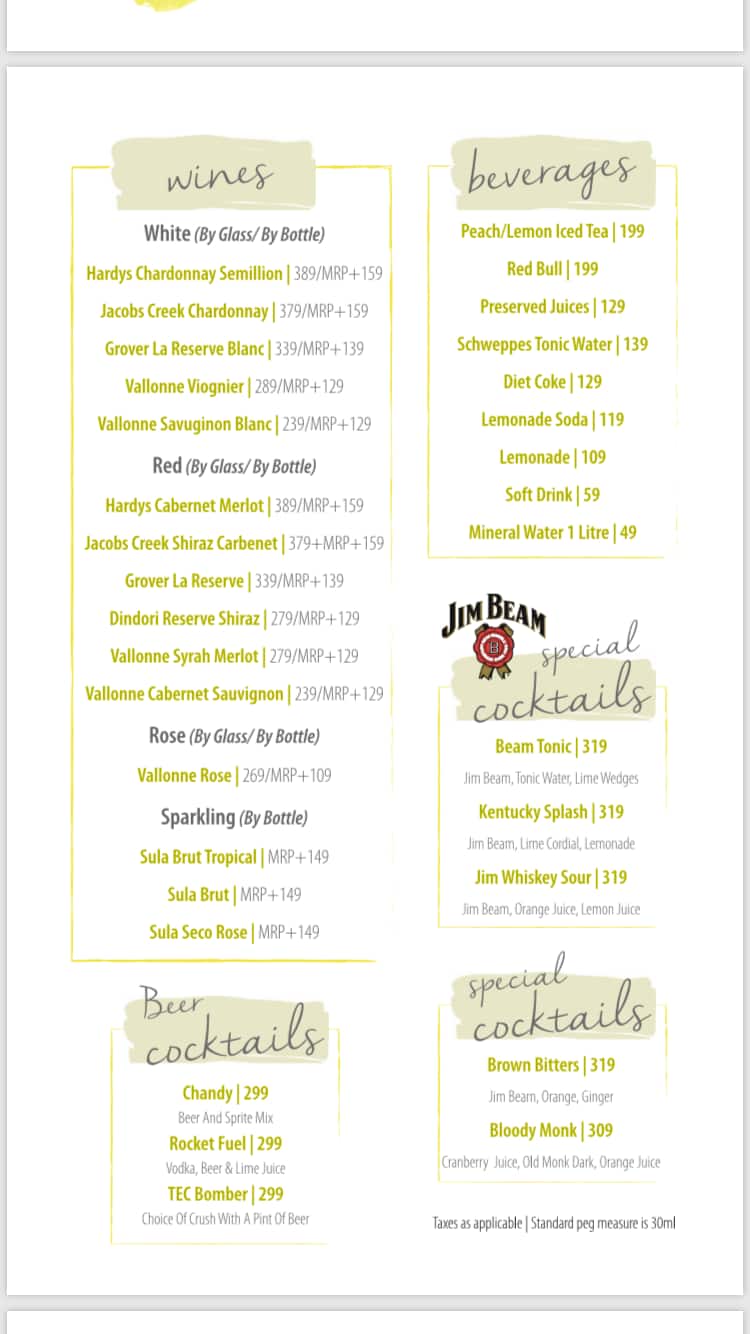 wines
White (By Glass/ By Bottle)
Hardys Chardonnay Semillion | 389/MRP+159
Jacobs Creek Chardonnay | 379/MRP+159
Grover La Reserve Blanc | 339/MRP+139
Vallonne Viognier | 289/MRP+129
Vallonne Savuginon Blanc | 239/MRP+129
Red (By Glass/ By Bottle)
Hardys Cabernet Merlot | 389/MRP+159
Jacobs Creek Shiraz Carbenet | 379+MRP+159
Grover La Reserve | 339/MRP+139
Dindori Reserve Shiraz | 279/MRP+129
Vallonne Syrah Merlot | 279/MRP+129
Vallonne Cabernet Sauvignon | 239/MRP+129
Rose (By Glass/ By Bottle)
Vallonne Rose | 269/MRP+109
Sparkling (By Bottle)
Sula Brut Tropical | MRP+149
Sula Brut | MRP+149
Sula Seco Rose | MRP+149
Beer
cocktails
Chandy | 299
Beer And Sprite Mix
Rocket Fuel | 299
Vodka, Beer & Lime Juice
TEC Bomber | 299
Choice Of Crush With A Pint Of Beer
beverages
Peach/Lemon Iced Tea | 199
Red Bull | 199
Preserved Juices | 129
Schweppes Tonic Water | 139
Diet Coke | 129
Lemonade Soda | 119
Lemonade | 109
Soft Drink | 59
Mineral Water 1 Litre | 49
JIM BEAM
B
special
cocktails
Beam Tonic | 319
Jim Beam, Tonic Water, Lime Wedges
Kentucky Splash | 319
Jim Beam, Lime Cordial, Lemonade
Jim Whiskey Sour | 319
Jim Beam, Orange Juice, Lemon Juice
special
cocktails
Brown Bitters | 319
Jim Beam, Orange, Ginger
Bloody Monk | 309
Cranberry Juice, Old Monk Dark, Orange Juice
Taxes as applicable | Standard peg measure is 30ml